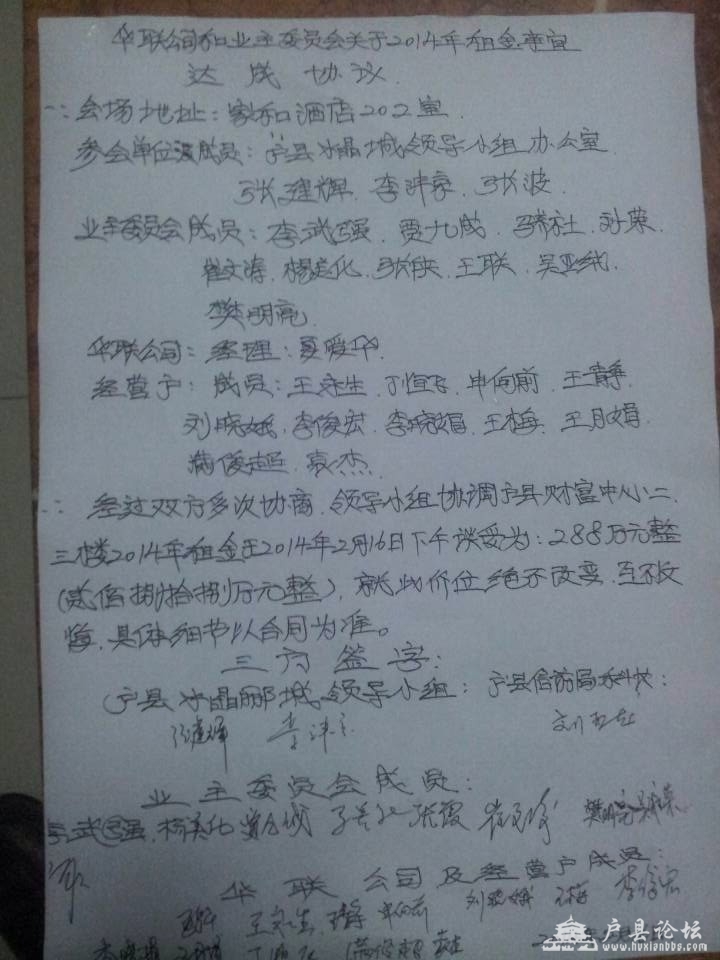 华联公司和业主委员会关于2014年租金事宜
达成协议
一：会场地址：家和酒店202室
参会单位及成员：户县水晶城领导小组办公室
张建辉 李沣京 张波
业主委员会成员：李武强 贾九成 社 孙荣
崔文涛 杨美化 张侠 王联 吴亚线
樊明亮
华联公司：经理：夏爱华
经营户：成员：王永生 丁恒飞 申向前 王静
刘晓娥 李俊宏 李晓娟 王梅 王月娟
蒲俊超 袁杰
二：经过双方多次协商，领导小组协调户县财富中心二
三楼2014年租金于2014年2月16日下午谈妥为：288万元整
(贰佰捌拾捌万元整)，就此价位绝不改变，互不反
悔，具体细节以合同为准。
三方签字：
户县水晶郦城领导小组：户县信访局科长：
张建辉 李沣京
业主委员会成员：
李武强 杨美化 贾九成 张霞 崔文涛 樊明亮
华联公司及经营户成员：
刘晓娥 王梅 李俊宏
王永生 王静 申向前
户县论坛
www.huxianbbs.com